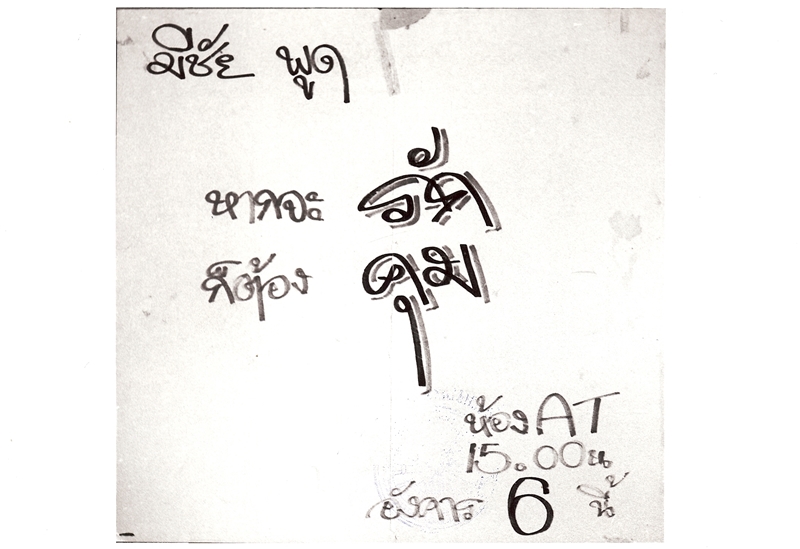 มีชัย พูด
หากจะ รัก
ก็ต้อง คุม
ห้อง AT
15.00 น
อังคาร 6 นี้